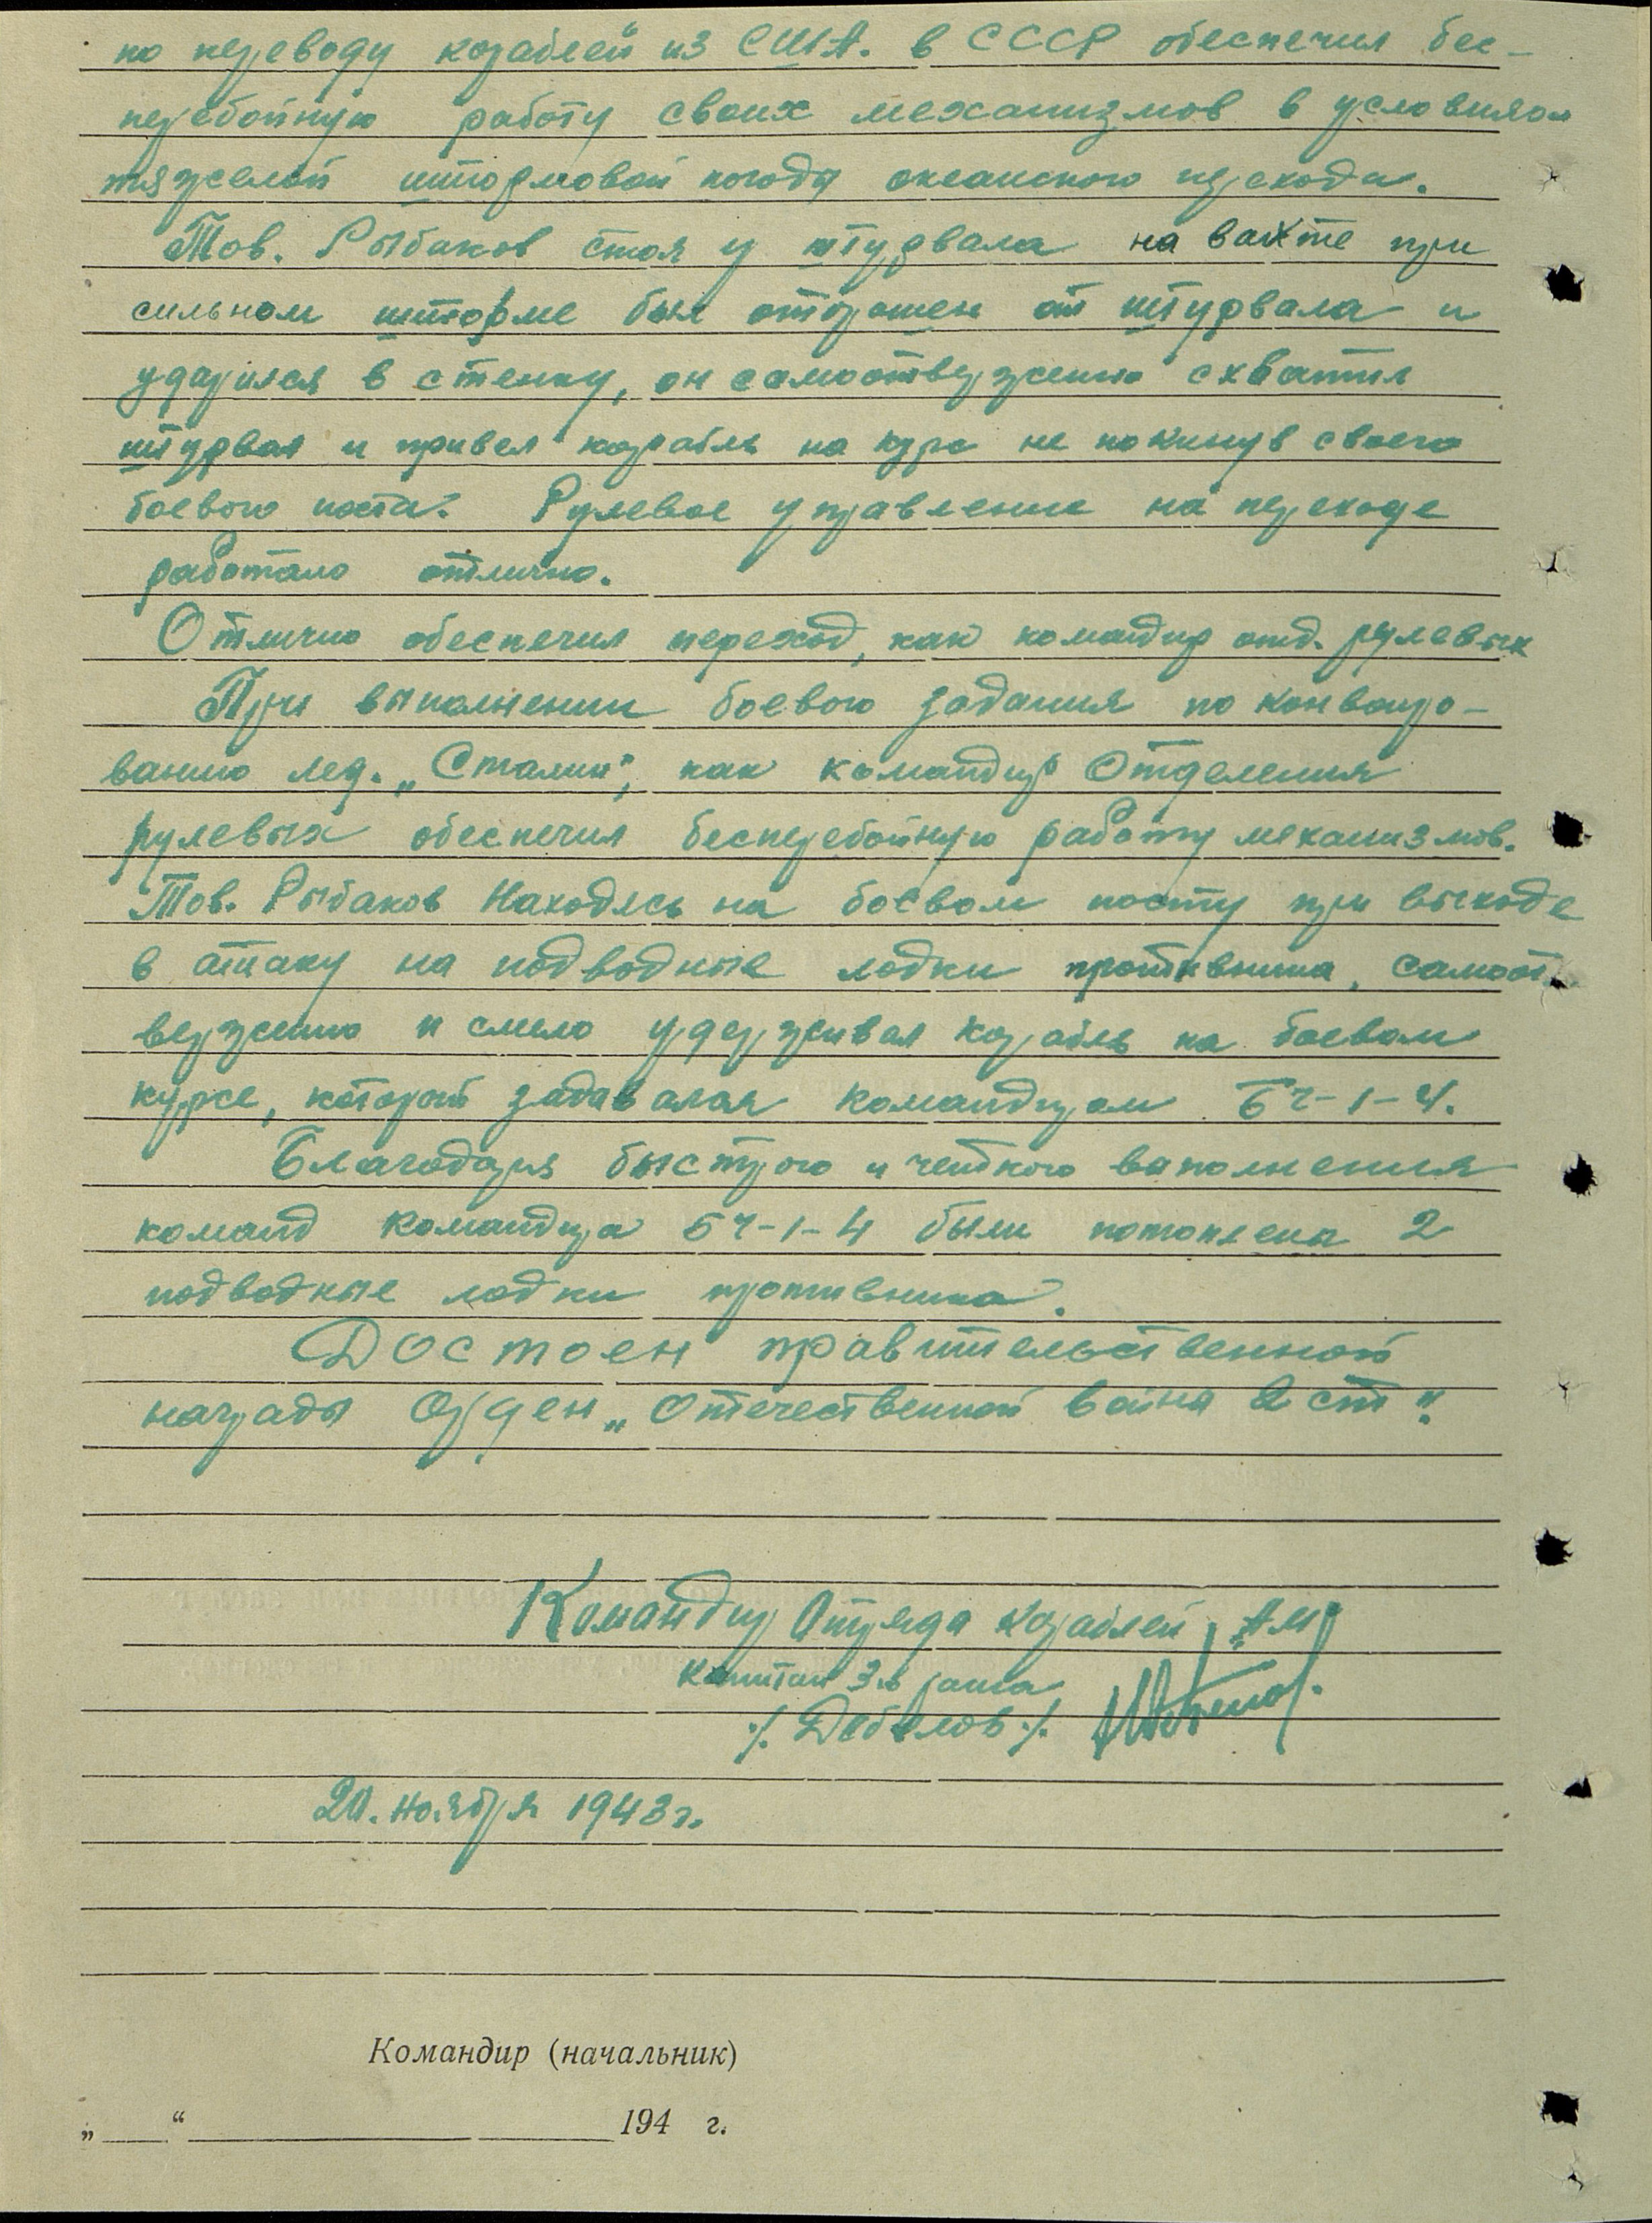 по переводу кораблей из США. в СССР обеспечил бес-
перебойную работу своих механизмов в условиях
тяжелой штормовой погоды океанского перехода.
Тов. Рыбаков стоя у штурвала на вахте при
сильном шторме был отброшен от штурвала и
ударился в стенку, он самоотверженно схватил
штурвал и привел корабль на курс не покинув своего
боевого поста. Рулевое управление на переходе
работало отлично.
Отлично обеспечил переход, как командир отд. рулевых
При выполнении боевого задания по конвоиро-
ванию лед. „Сталин", как командир Отделения
рулевых обеспечил бесперебойную работу механизмов.
Тов. Рыбаков Находясь на боевом посту при выходе
в атаку на подводные лодки противника, самоот-
верженно и смело удерживал корабль на боевом
курсе, который задавался командиром БЧ-1-4.
Благодаря быстрого и четкого выполнения
команд командира БЧ-1-4 были потоплены 2
подводные лодки противника.
Достоен правительственной
награды Орден „Отечественной война 2 ст".
Командир Отряда кораблей „АМ"
Капитан 3-в ранга
/. Дебелов ./.
20. ноября 1943 г.
Командир (начальник)
„ “ 194 г.